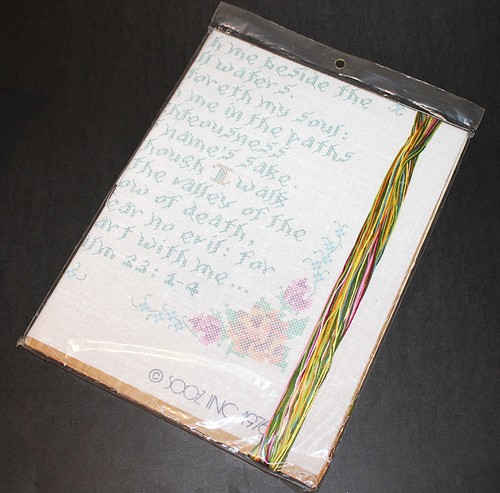 h me beside the
ll waters.
foreth my soul:
me in the paths
hteousness
name's sake.
hough I walk
the valley of the
ow of death,
ear no evil: for
art with me...
lm 23: 1-4
© SOOZ INC 1976